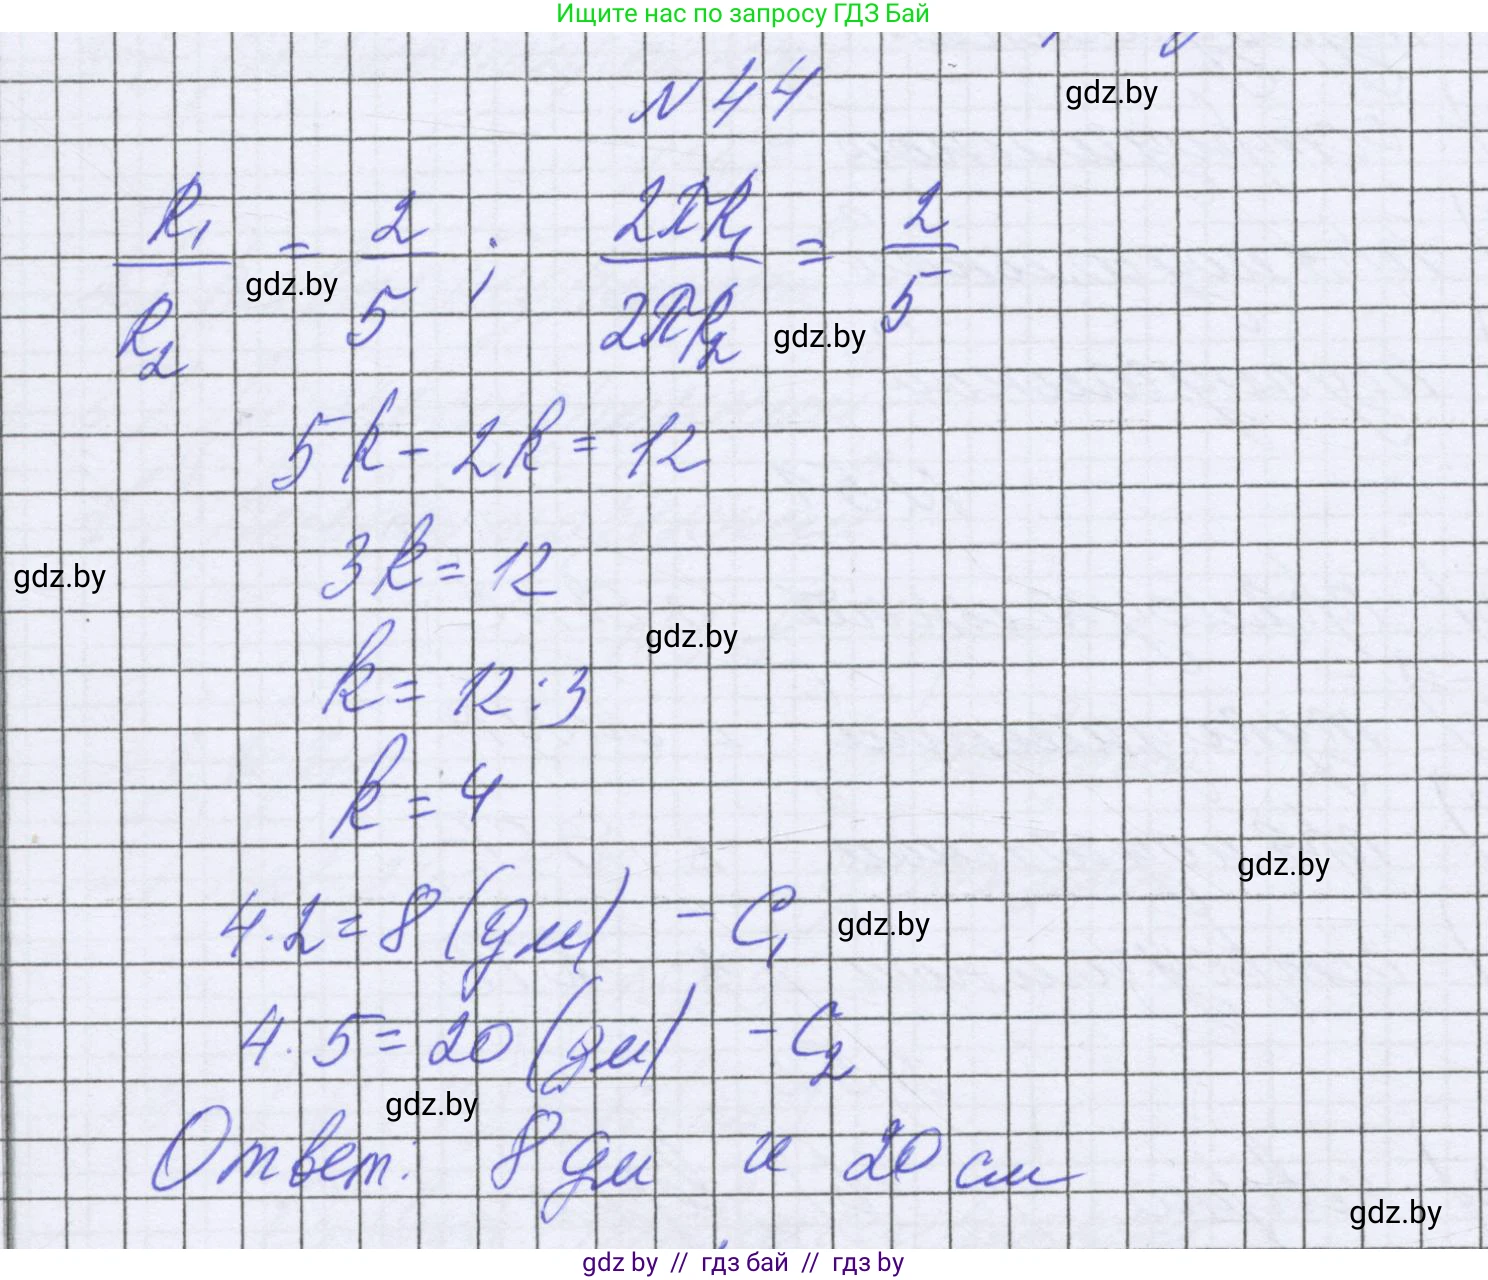 Ищите нас по запросу ГДЗ Бай
N 44
gdz.by
R₁/R₂ = 2/5 ; 2πR₁/2πR₂ = 2/5
gdz.by
gdz.by
5k - 2k = 12
3k = 12
gdz.by
gdz.by
k = 12 : 3
k = 4
gdz.by
4 · 2 = 8 (дм) - C₁
gdz.by
4 · 5 = 20 (дм) - C₂
gdz.by
Ответ: 8 дм и 20 см
gdz.by
gdz by // гдз бай // гдз by